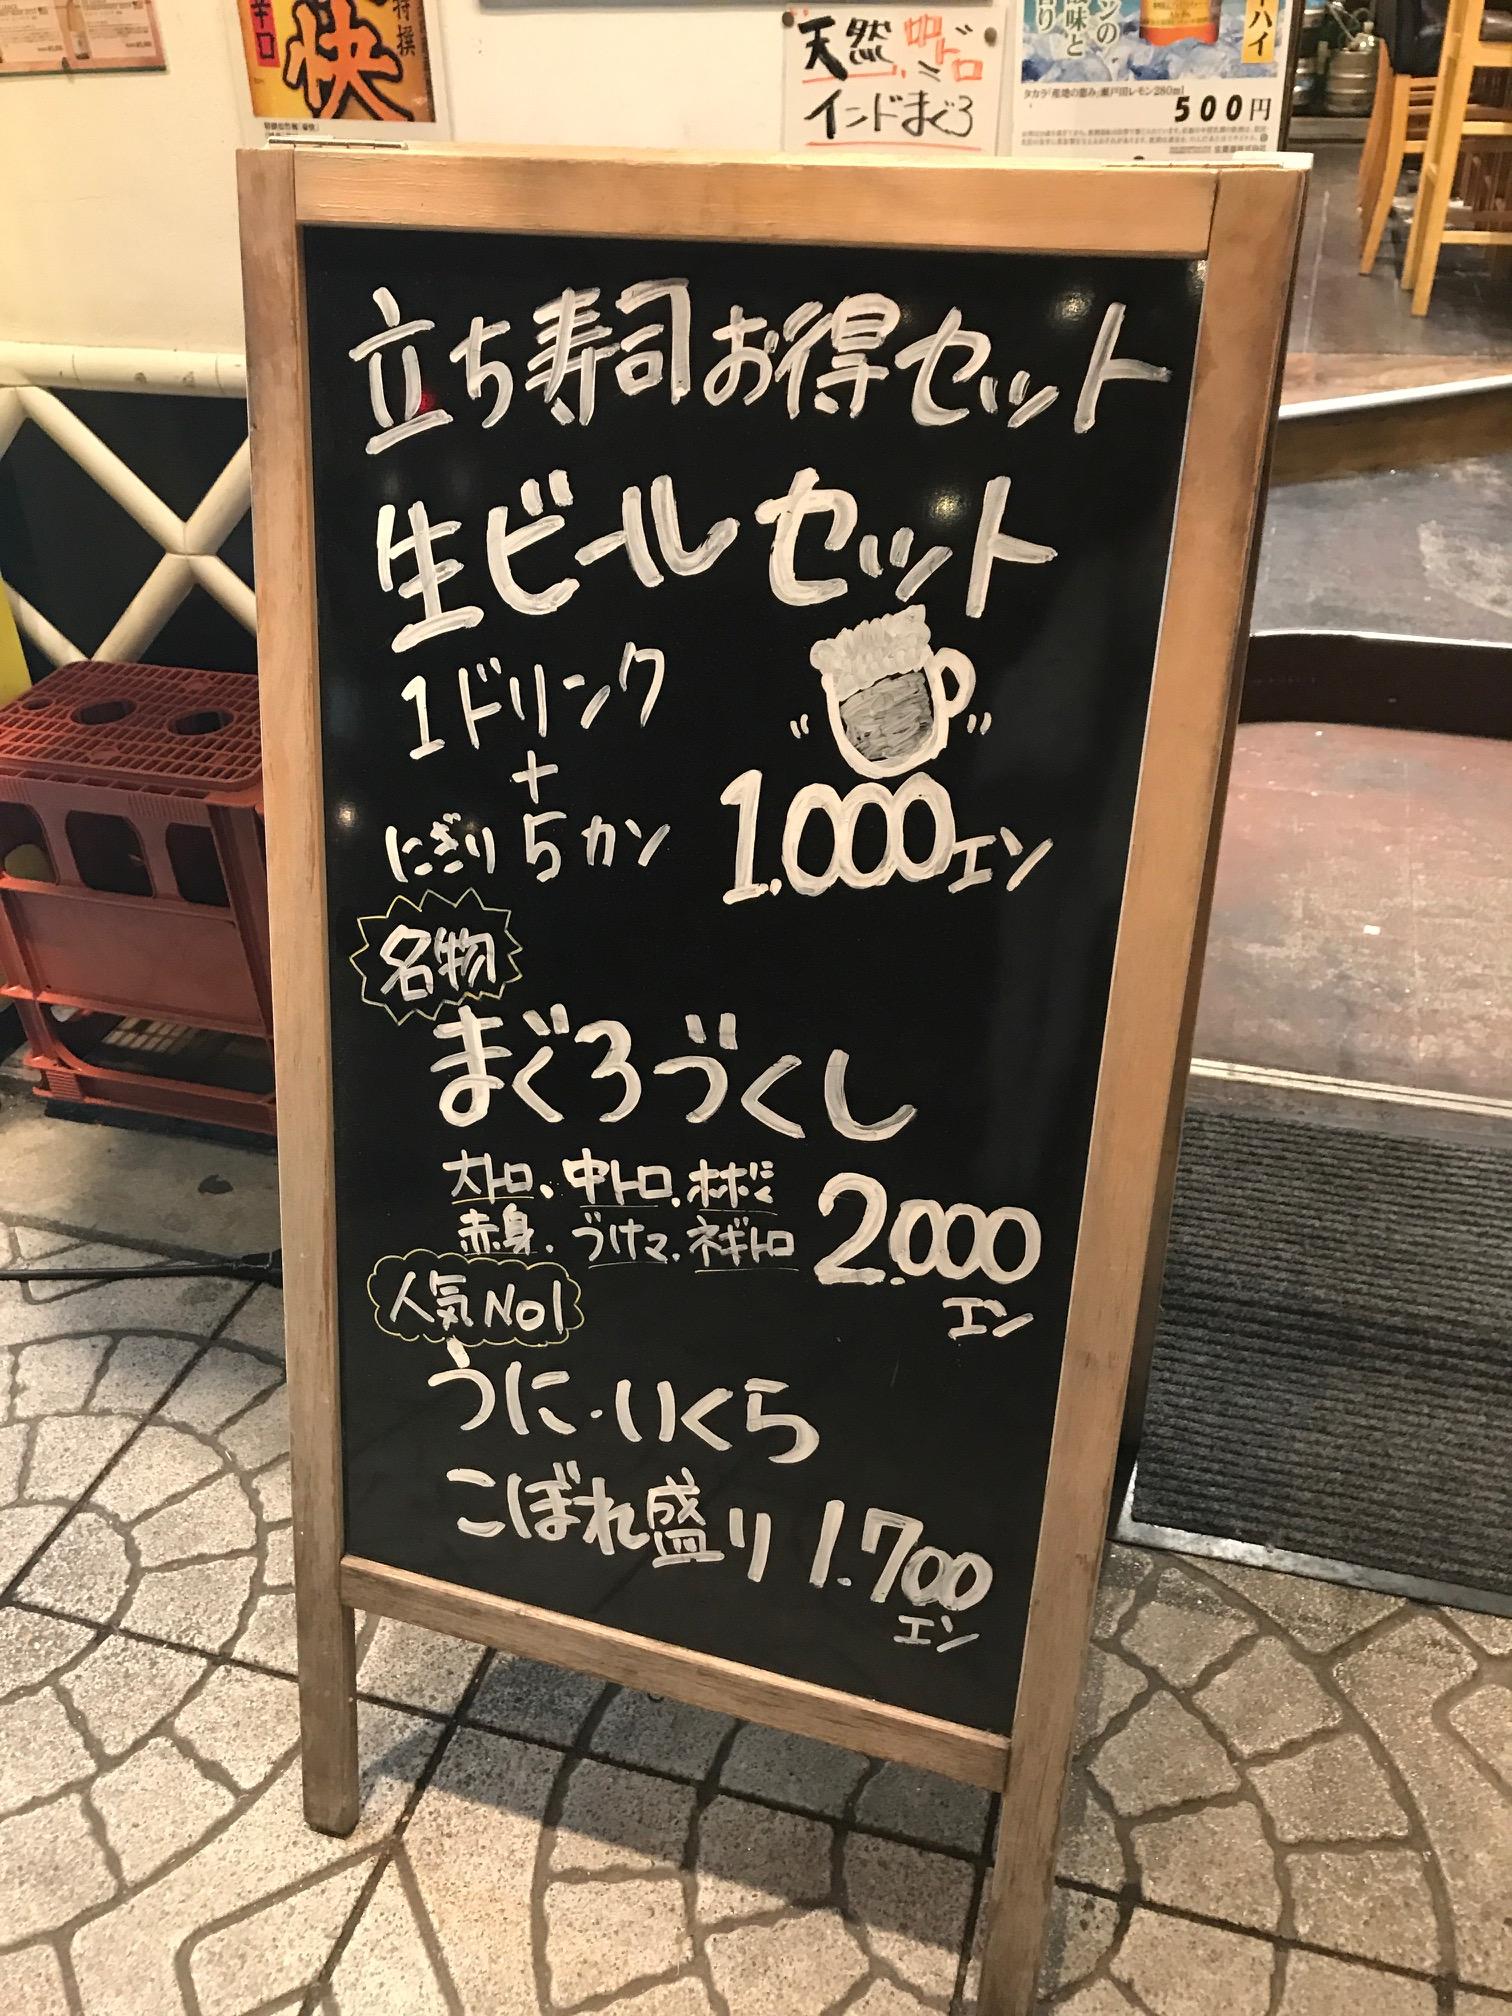 特撰
辛口
快
天然
中トロ
インドまぐろ
ンの
酸味と
香り
ーハイ
タカラ「産地の恵み」瀬戸田レモン280ml
500円
立ち寿司お得セット
生ビールセット
1ドリンク
+
にぎり5カン
1.000エン
名物
まぐろづくし
大トロ、中トロ、ホホにく
赤身、づけマ、ネギトロ
2.000
エン
人気No1
うに・いくら
こぼれ盛り 1.700
エン